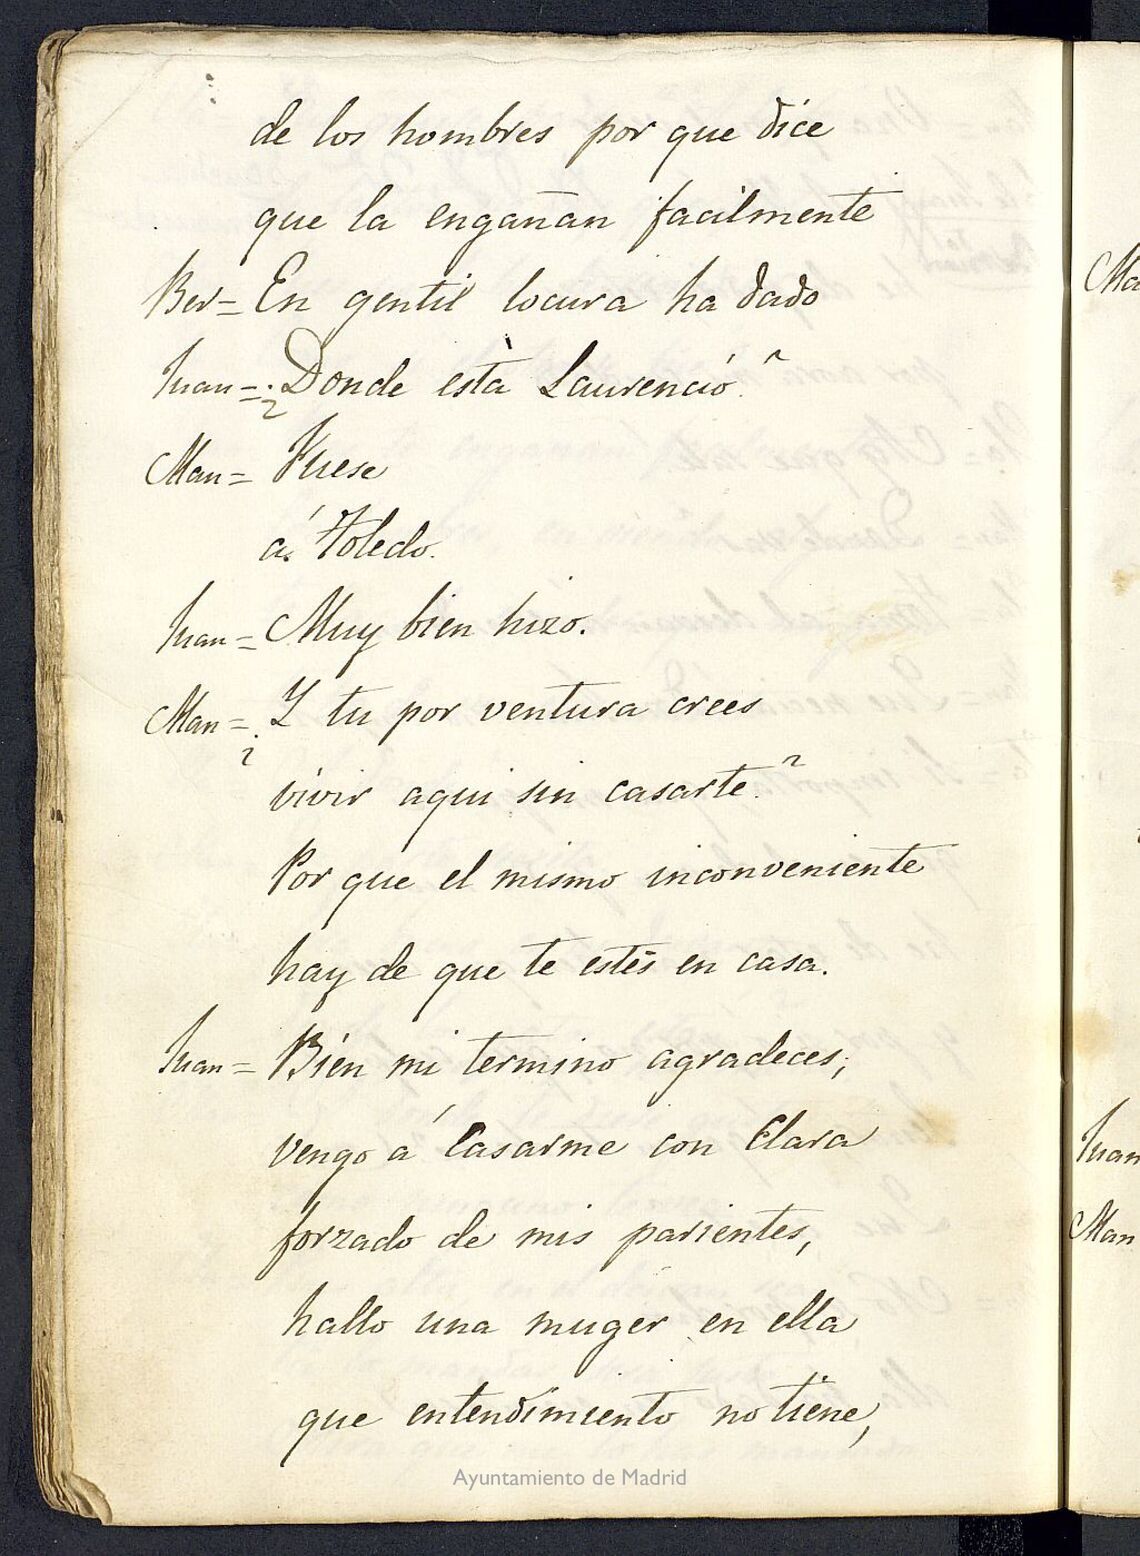 de los hombres por que dice
que la engañan facilmente
Ber= En gentil locura ha dado
Juan= ¿Donde está Laurenció?
Man= Fuese
á Toledo.
Juan= Muy bien hizo.
Man= ¿Y tu por ventura crees
vivir aqui sin casarte?
Por que el mismo inconveniente
hay de que te estés en casa.
Juan= Bien mi termino agradeces;
vengo á Casarme con Clara
forzado de mis parientes,
hallo una muger en ella
que entendimiento no tiene,
Ma
Juan
Man
Ayuntamiento de Madrid